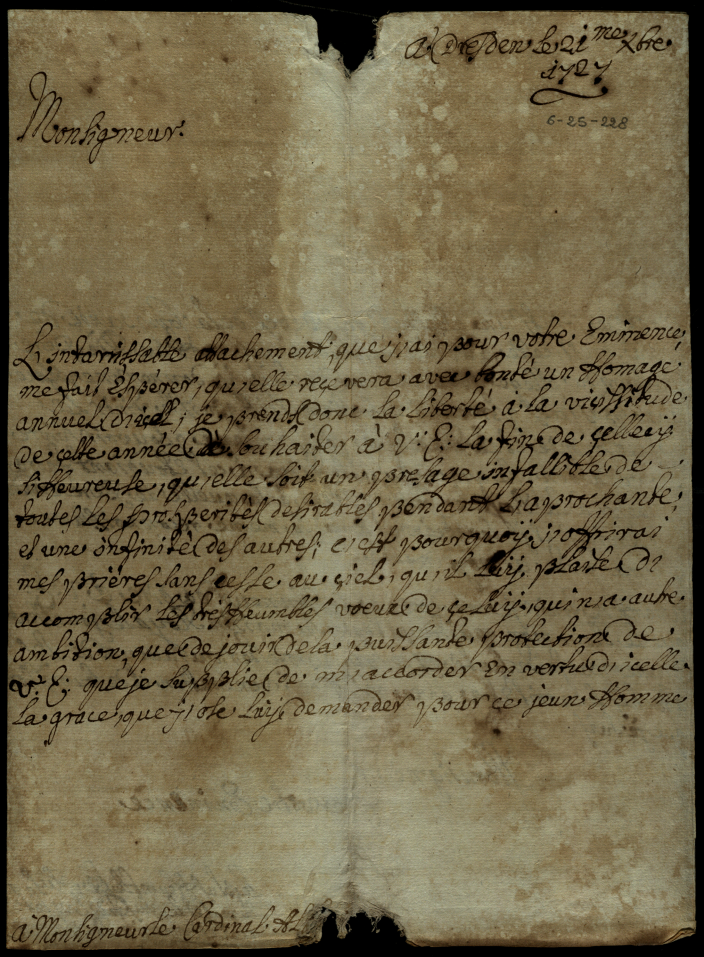 à Dresden le 21me xbre
1727
6-25-228
Monsigneur.
L'intarrissable attachement, que j'ai pour votre Eminence,
me fait Esperer, qu'elle recevera avec bonté un Homage
annuel je prends donc la liberté à la vicissitude
de cette année de souhaiter à V: E: la fin de celle cy
si Heureuse, qu'elle soit un presage infallible de
toutes les prosperités desirables pendant la prochante;
et une infinité des autres; c'est pourquoy, j'offrirai
mes prières sans cesse au çiel, qu'il luy plaise di
accomplir les trèsHeumbles voeux de çeluy, qui n'a autre
ambition, que de jouir de la puissante protection de
V: E; que je supplie de m'accorder En vertu d'icelle
la grace, que j'ose luy demander pour ce jeun Homme
à Monsigneur le Cardinal Al